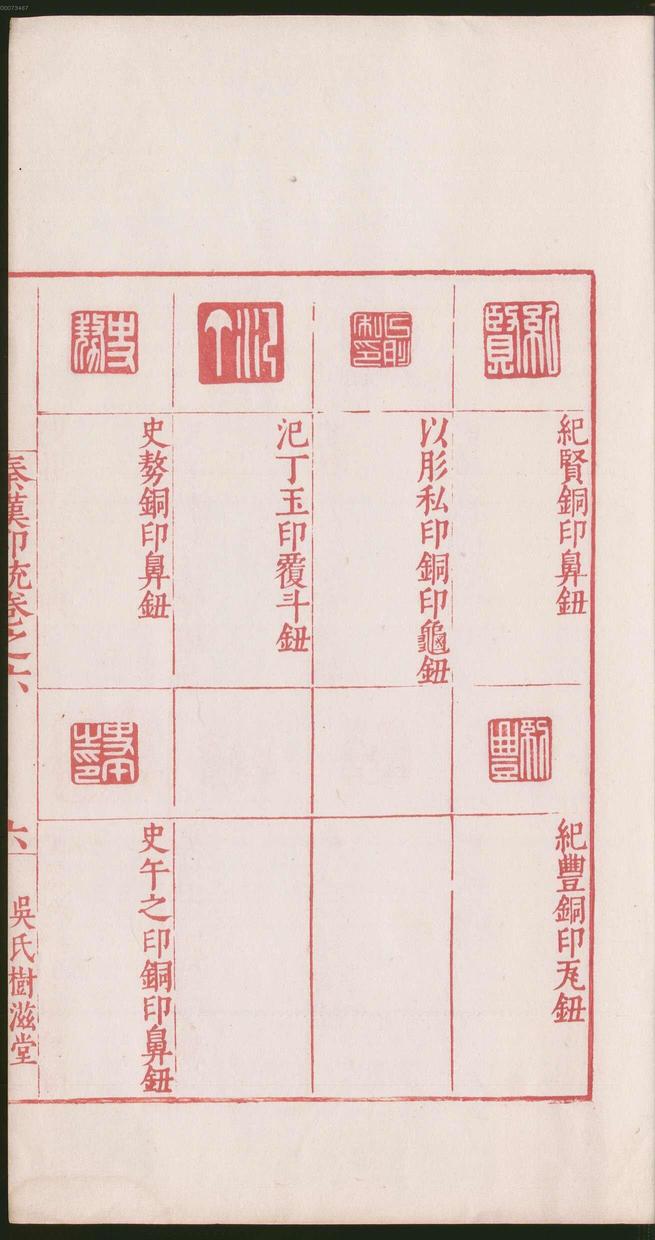 00073467
紀賢銅印鼻鈕
紀豐銅印瓦鈕
以肜私印銅印龜鈕
汜丁玉印覆斗鈕
史嫯銅印鼻鈕
史午之印銅印鼻鈕
秦漢印統卷之六
六
吳氏樹滋堂